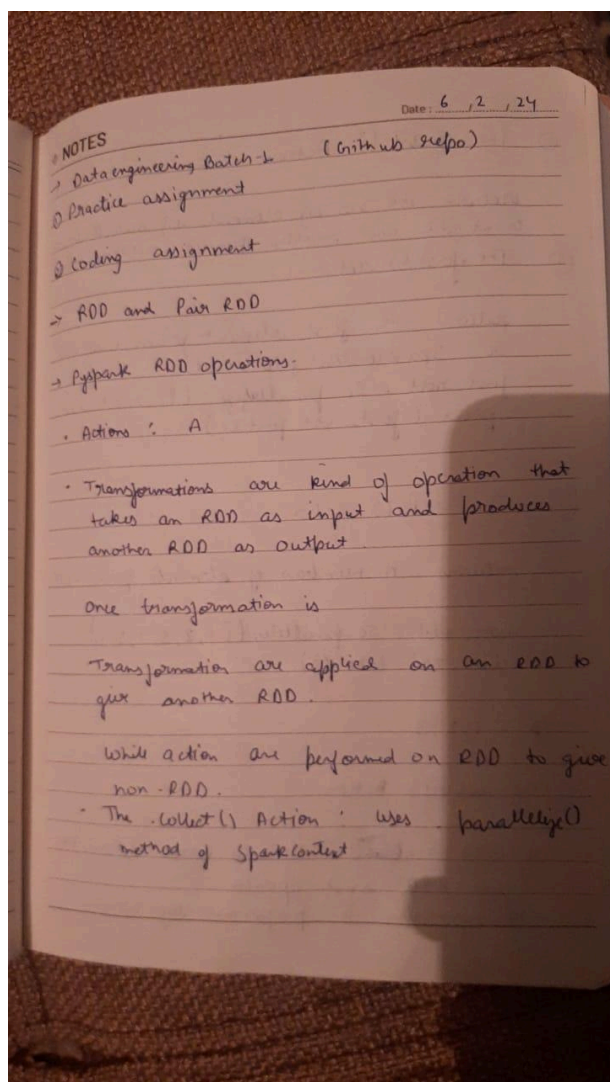 Date: 6 , 2 , 24
NOTES
→ Data engineering Batch-1 (Github repo)
① Practice assignment
② Coding assignment
→ RDD and Pair RDD
→ Pyspark RDD operations.
· Actions : A
· Transformations are kind of operation that
takes an RDD as input and produces
another RDD as output.
Once transformation is
Transformation are applied on an RDD to
give another RDD.
While action are performed on RDD to give
non-RDD.
· The .collect() Action : uses parallelize()
method of SparkContext